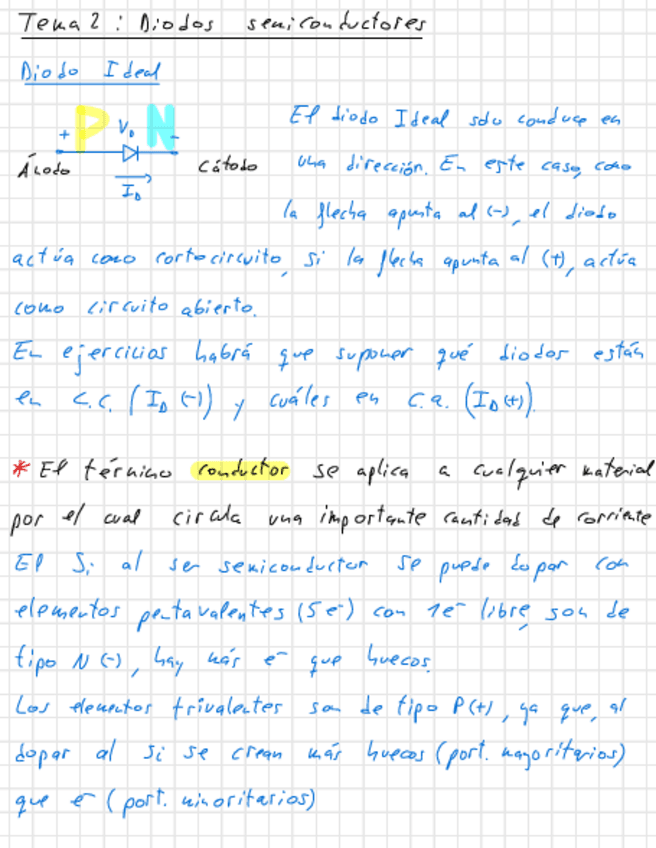 Tema 2 : Diodos semiconductores
Diodo Ideal
+ P V_D N -
Ánodo
Cátodo
I_D
El diodo Ideal solo conduce en
una dirección. En este caso, como
la flecha apunta al (-), el diodo
actúa como cortocircuito, si la flecha apunta al (+), actúa
como circuito abierto.
En ejercicios habrá que suponer qué diodos están
en C.C. (I_D (-)) y cuáles en C.a. (I_D (+)).
* El término conductor se aplica a cualquier material
por el cual circula una importante cantidad de corriente
El Si al ser semiconductor se puede dopar con
elementos pentavalentes (5e⁻) con 1e⁻ libre, son de
tipo N (-), hay más e⁻ que huecos.
Los elementos trivalentes son de tipo P(+), ya que, al
dopar al si se crean más huecos (port. mayoritarios)
que e⁻ (port. minoritarios)